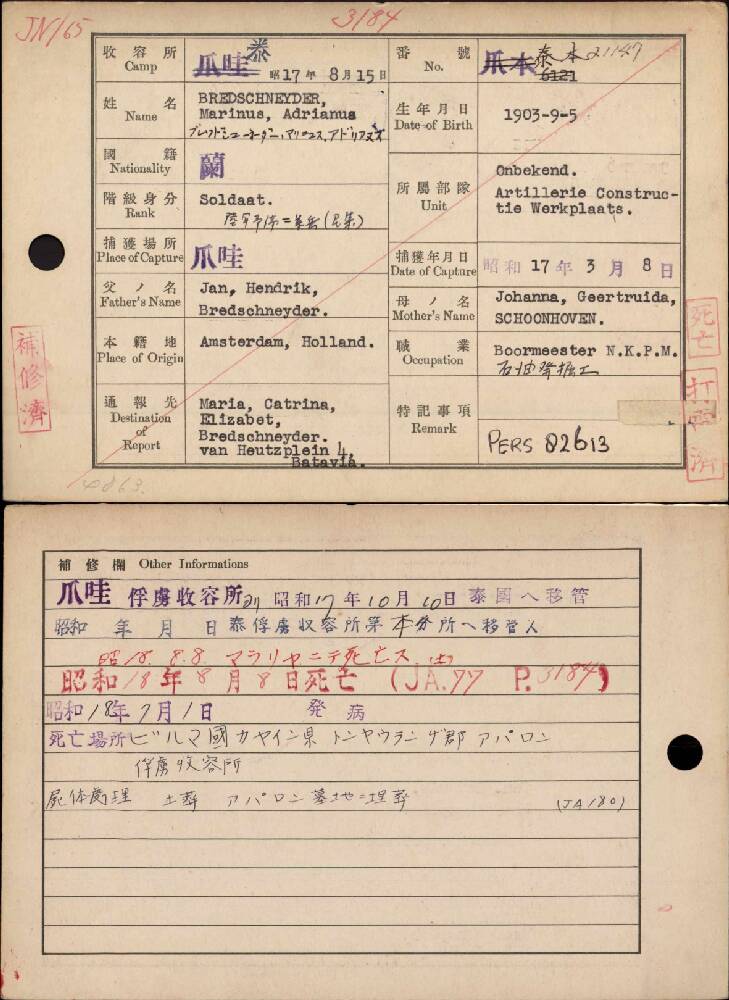 JN/65
3184
收容所 Camp 爪哇 泰
昭17年8月15日
番號 No. 爪本 泰本 21147
6121
姓名 Name BREDSCHNEYDER,
Marinus, Adrianus
生年月日 Date of Birth 1903-9-5
國籍 Nationality 蘭
階級身分 Rank Soldaat.
所屬部隊 Unit Onbekend.
Artillerie Construc-
tie Werkplaats.
捕獲場所 Place of Capture 爪哇
捕獲年月日 Date of Capture 昭和17年3月8日
父ノ名 Father's Name Jan, Hendrik,
Bredschneyder.
母ノ名 Mother's Name Johanna, Geertruida,
SCHOONHOVEN.
本籍地 Place of Origin Amsterdam, Holland.
職業 Occupation Boormeester N.K.P.M.
石油降掘工
通報先 Destination of Report Maria, Catrina,
Elizabet,
Bredschneyder.
van Heutzplein 4,
Batavia.
特記事項 Remark PERS 02613
補修濟
死亡
打電濟
補修欄 Other Informations
爪哇俘虜收容所ヨリ昭和17年10月10日泰國ヘ移管
昭和 年 月 日泰俘虜収容所第本分所ヘ移管入
昭18.8.8 マラリヤニテ死亡ス
昭和18年8月8日死亡 (JA.77 P.3184)
昭和18年7月1日 発病
死亡場所ビルマ國カヤイン県 トンヤウランザ郡 アパロン
俘虜收容所
屍体處理 土葬 アパロン墓地ニ埋葬 (JA180)